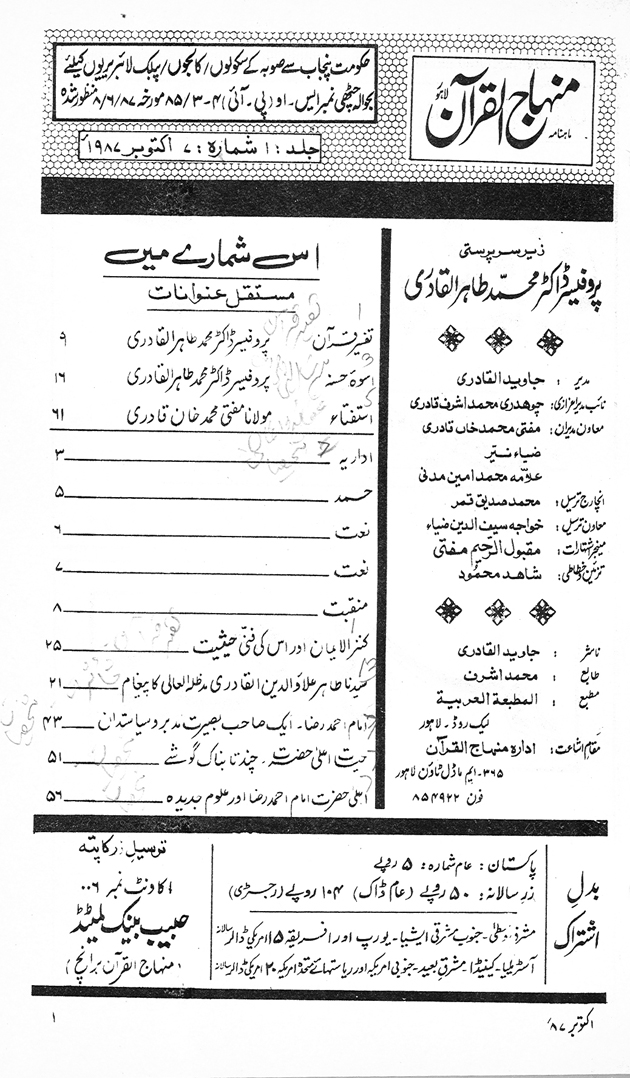 ماہنامہ منہاج القرآن لاہور
حکومت پنجاب سے صوبہ کے سکولوں/کالجوں/پبلک لائبریریوں کیلئے
بحوالہ چٹھی نمبر ایس۔او(پی۔آئی)۴-۳/۸۵ مورخہ ۸/۶/۸۷ منظور شدہ
جلد : ۱ شمارہ : ۷ اکتوبر ۱۹۸۷ء
زیر سرپرستی
پروفیسر ڈاکٹر محمد طاہر القادری
مدیر : جاوید القادری
نائب مدیر اعزازی: چوھدری محمد اشرف قادری
معاون مدیران: مفتی محمد خاں قادری
ضیاء نیّر
علامہ محمد امین مدنی
انچارج ترسیل: محمد صدیق قمر
معاون ترسیل: خواجہ سیف الدین ضیاء
مینجر اشتہارات: مقبول الرحیم مفتی
تزئین و خطاطی: شاھد محمود
ناشر : جاوید القادری
طابع : محمد اشرف
مطبع : المطبعۃ العربیۃ
لیک روڈ۔ لاہور
مقام اشاعت: ادارہ منہاج القرآن
۳۶۵۔ایم ماڈل ٹاؤن لاہور
فون ۸۵۴۹۲۲
اس شمارے میں
مستقل عنوانات
تفسیر قرآن پروفیسر ڈاکٹر محمد طاہر القادری ۹
اسوۂ حسنہ پروفیسر ڈاکٹر محمد طاہر القادری ۱۶
استفتاء مولانا مفتی محمد خان قادری ۶۱
اداریہ ۳
حمد ۵
نعت ۶
نعت ۷
منقبت ۸
کنز الایمان اور اس کی فنّی حیثیت ۲۵
سیدنا طاہر علاؤ الدین القادری مدظلہ العالی کا پیغام ۲۱
امام احمد رضا۔ ایک صاحب بصیرت مدبر و سیاستدان ۴۳
حیات اعلیٰ حضرت۔ چند تابناک گوشے ۵۱
اعلیٰ حضرت امام احمد رضا اور علوم جدیدہ ۵۶
بدلِ اشتراک
پاکستان: عام شمارہ: ۵ روپے
زرِ سالانہ: ۵۰ روپے (عام ڈاک) ۱۰۴ روپے (رجسڑی)
مشرق وسطیٰ۔ جنوب مشرقی ایشیا۔ یورپ اور افریقہ ۱۵ امریکی ڈالر سالانہ
آسٹریلیا۔ کینیڈا۔ مشرق بعید۔ جنوبی امریکہ اور ریاستہائے متحدہ امریکہ ۲۰ امریکی ڈالر سالانہ
ترسیل زر کا پتہ
اکاؤنٹ نمبر ۰۰۶
حبیب بینک لمیٹڈ
(منہاج القرآن برانچ)
اکتوبر ۸۷ء
۱